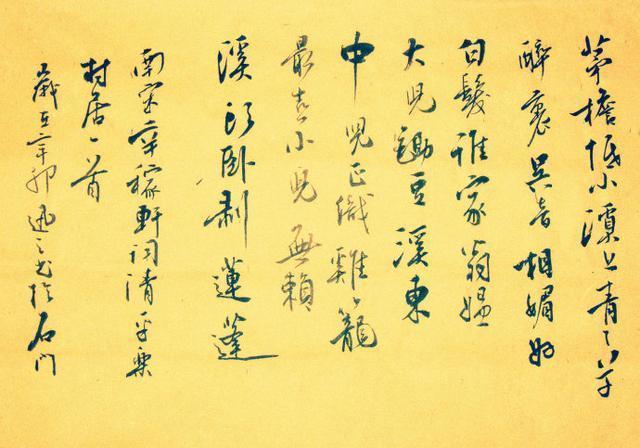 茅檐低小溪上青々草
醉裏吴音相媚好
白髮谁家翁媪
大兒鋤豆溪東
中兒正織雞籠
最喜小兒無賴
溪头卧剥蓮蓬
南宋辛稼軒词清平樂
村居一首
歲在辛卯迅之书於石门